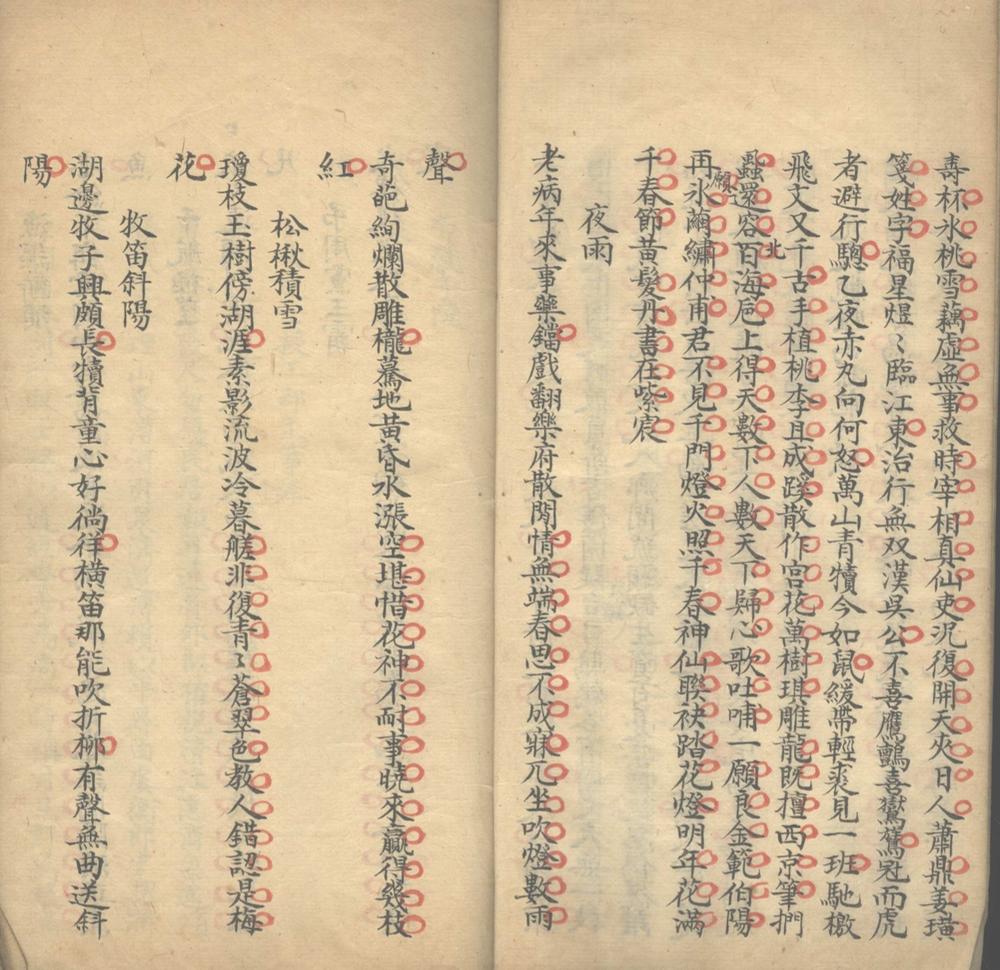 壽杯氷桃雪藕虛無事救時宰相真仙吏況復開天夾日人蕭鼎姜璜
箋姓字福星煜〻臨江東治行無双漢吳公不喜鷹鸇喜鸑鷟冠而虎
者避行驄乙夜赤丸向何怒萬山青犢今如鼠緩帶輕裘見一班馳檄
飛文又千古手植桃李且成蹊散作宮花萬樹琪雕龍旣擅西京筆捫
蝨還容百海巵上得天數下人數天下歸心歌吐哺一願良金範伯陽
北
再氷繭繡仲甫君不見千門燈火照千春神仙聯袂踏花燈明年花滿
願
千春節黃髮丹書在紫宸
夜雨
老病年來事藥鐺戲翻樂府散閒情無端春思不成寐兀坐吹燈數雨
聲
奇葩絢爛散雕櫳驀地黃昏水漲空堪惜花神不耐事曉來贏得幾枝
紅
松楸積雪
瓊枝玉樹傍湖涯素影流波冷暮艖非復青〻蒼翠色教人錯認是梅
花
牧笛斜陽
湖邊牧子興頗長犢背童心好徜徉橫笛那能吹折柳有聲無曲送斜
陽